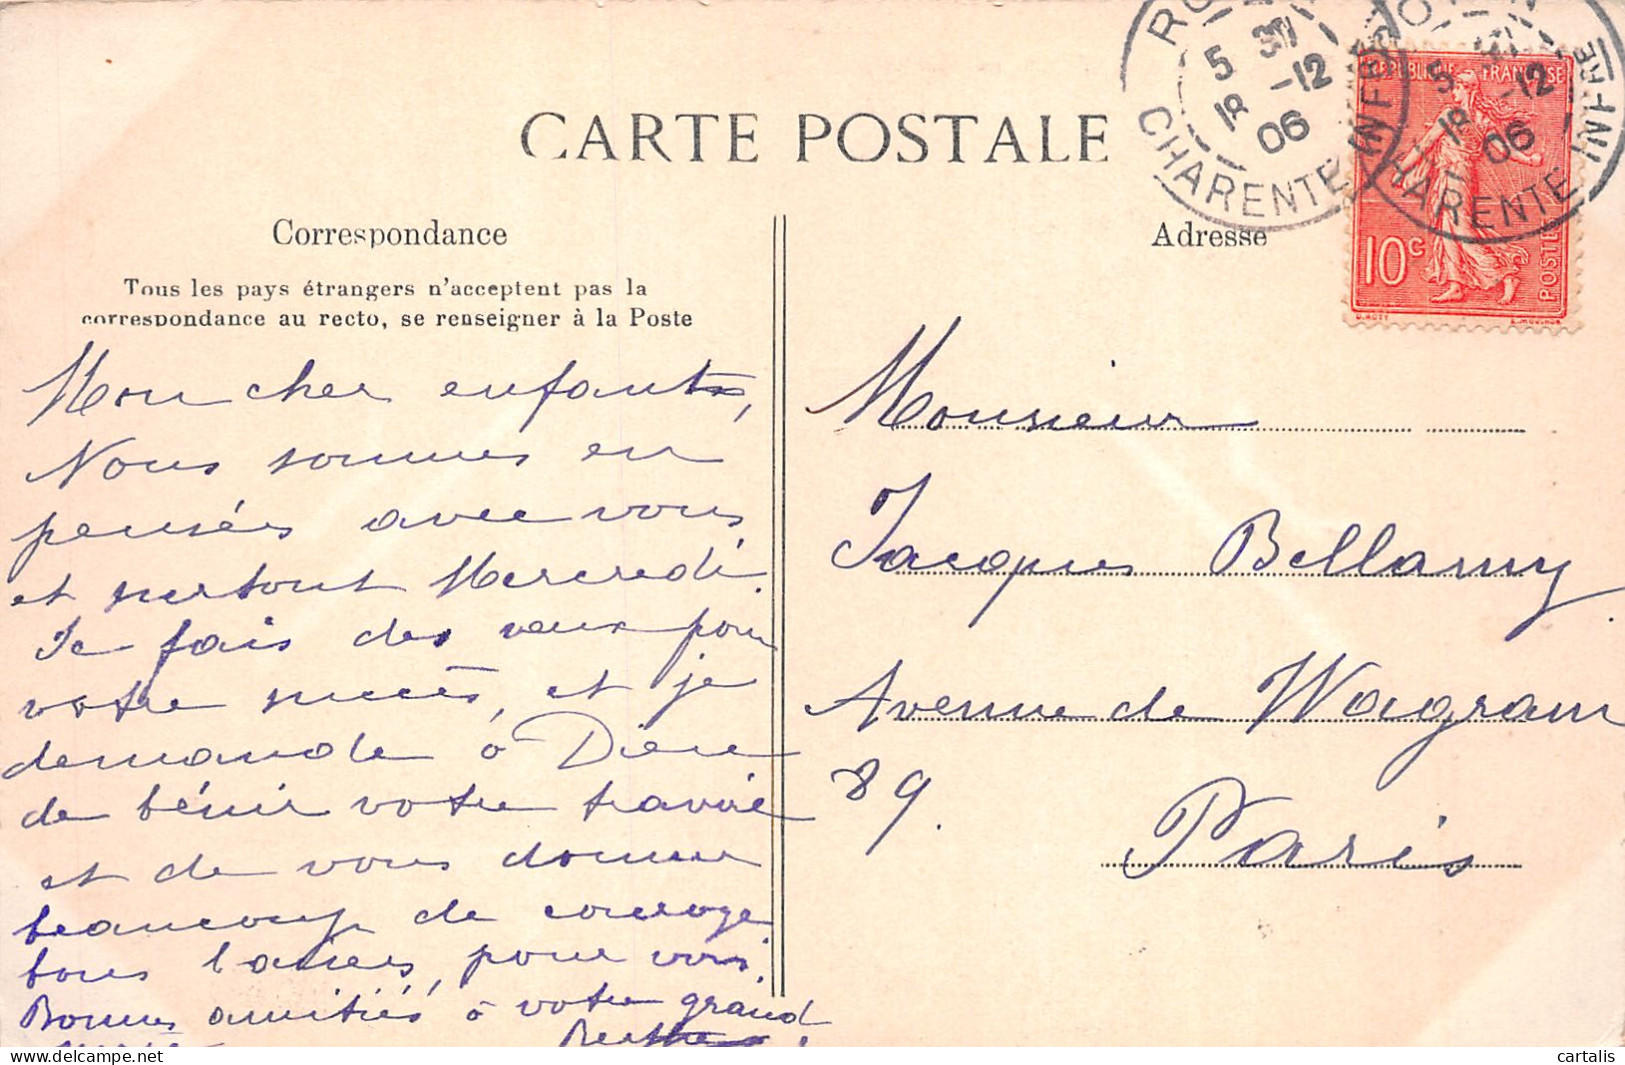 CARTE POSTALE
Correspondance
Tous les pays étrangers n'acceptent pas la
correspondance au recto, se renseigner à la Poste
Mon cher enfants,
Nous sommes en
pensées avec vous
et surtout Mercredi.
Je fais des vœux pour
votre succès, et je
demande à Dieu
de bénir votre travail
et de vous donner
beaucoup de courage
bons baisers, pour vous.
Bonnes amitiés à votre grand
mère
Berthe
Adresse
Monsieur
Jacques Bellamy
Avenue de Wagram
89.
Paris
RÉPUBLIQUE FRANÇAISE
10c
POSTES
O. ROTY
L. MOUCHON
5 30
18 -12
06
CHARENTE INFRE
5
18 -12
06
CHARENTE INFRE
cartalis